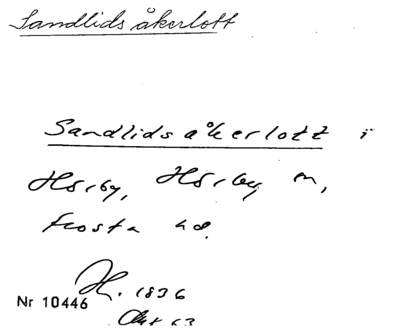 Sandlids åkerlott
Sandlids åkerlott i
Hörby, Hörby sn,
Frosta hd.
H. 1836
Nr 10446
Akt 63